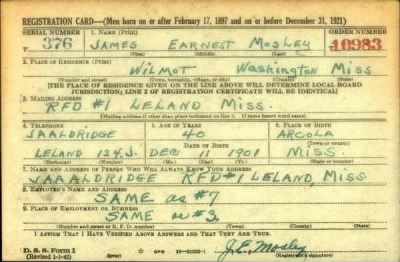 REGISTRATION CARD—(Men born on or after February 17, 1897 and on or before December 31, 1921)
SERIAL NUMBER 1. NAME (Print) ORDER NUMBER
T 376 JAMES EARNEST MOSLEY 10983
(First) (Middle) (Last)
2. PLACE OF RESIDENCE (Print)
WILMOT Washington Miss
(Number and street) (Town, township, village, or city) (County) (State)
[THE PLACE OF RESIDENCE GIVEN ON THE LINE ABOVE WILL DETERMINE LOCAL BOARD
JURISDICTION; LINE 2 OF REGISTRATION CERTIFICATE WILL BE IDENTICAL]
3. MAILING ADDRESS
RFD #1 LELAND MISS.
[Mailing address if other than place indicated on line 2. If same insert word same]
4. TELEPHONE 5. AGE IN YEARS 6. PLACE OF BIRTH
JAALDRIDGE 40 ARCOLA
DATE OF BIRTH (Town or county)
LELAND 124J. DEC 11 1901 MISS.
(Exchange) (Number) (Mo.) (Day) (Yr.) (State or country)
7. NAME AND ADDRESS OF PERSON WHO WILL ALWAYS KNOW YOUR ADDRESS
JAAALDRIDGE RFD#1 LELAND, MISS.
8. EMPLOYER'S NAME AND ADDRESS
SAME as #7
9. PLACE OF EMPLOYMENT OR BUSINESS
SAME as #3
(Number and street or R. F. D. number) (Town) (County) (State)
I AFFIRM THAT I HAVE VERIFIED ABOVE ANSWERS AND THAT THEY ARE TRUE.
D. S. S. Form 1
(Revised 1-1-42) GPO J.E. Mosley
(Registrant's signature)